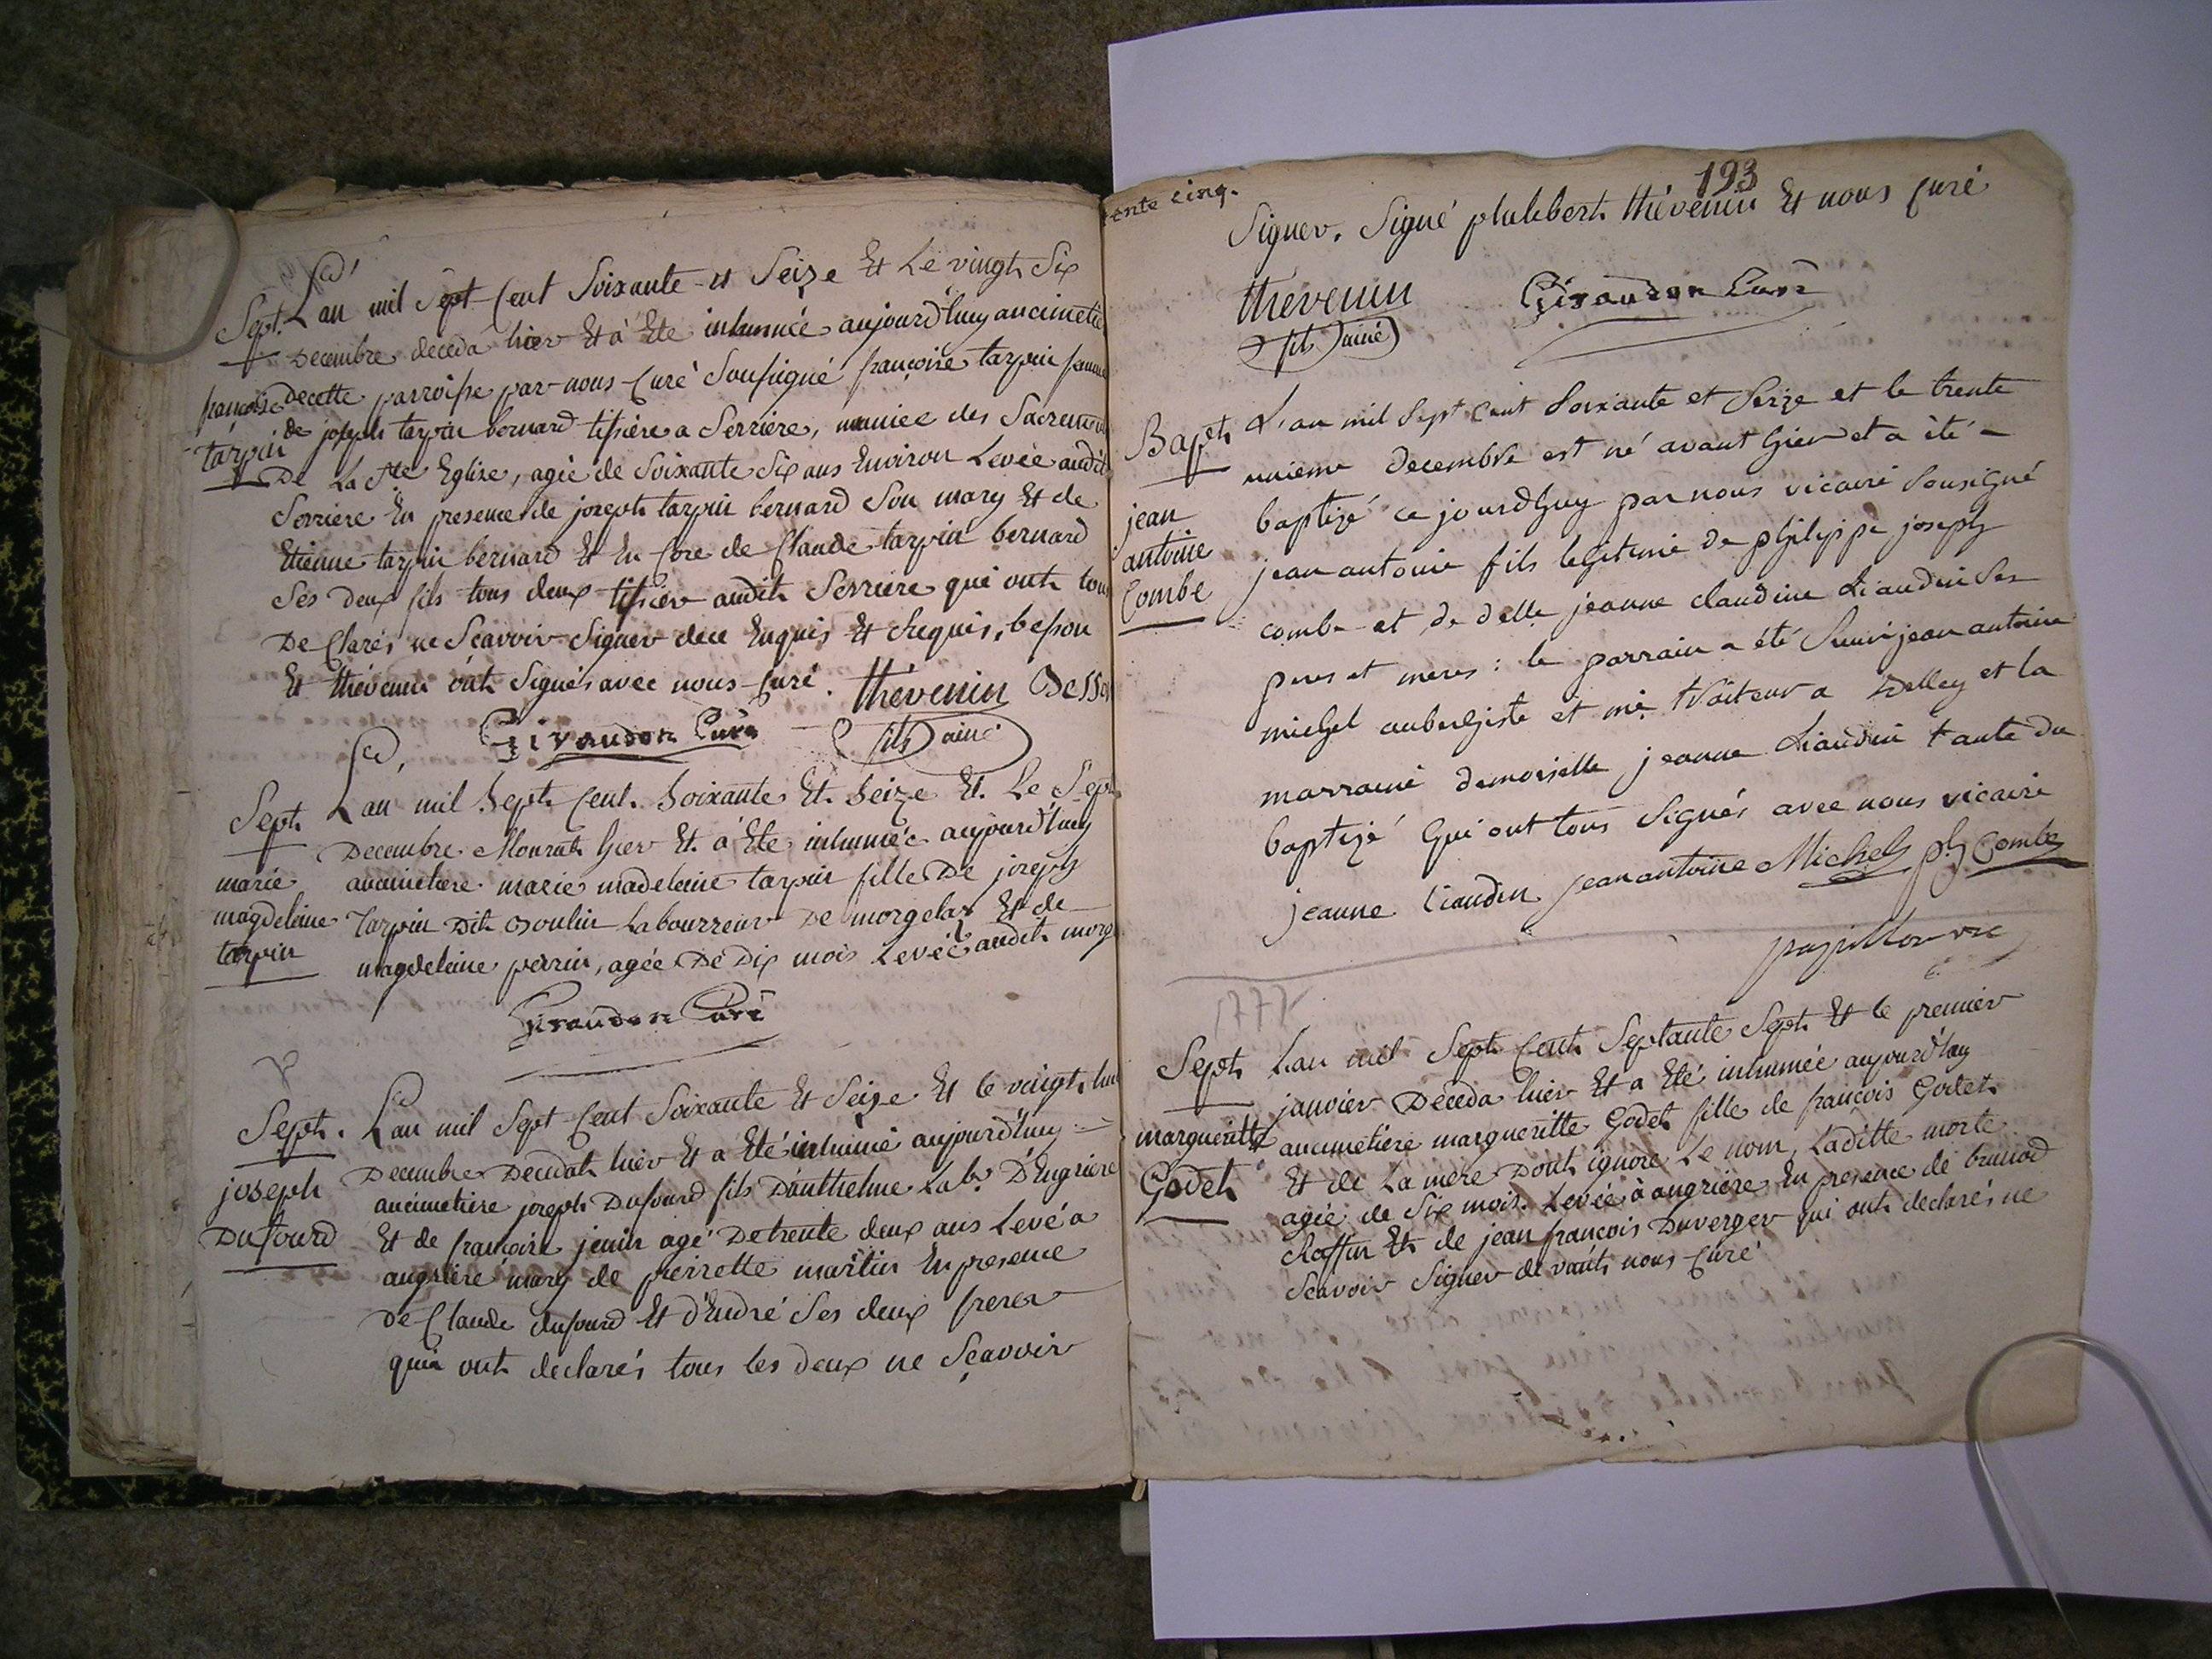 Sept. Lan mil Sept Cent Soixante et Seize Et Le vingt Six
Decembre deceda hier Et à Ete inhumée aujourd'huy au cimetie
françoise decette parroisse par nous Curé Sousigné françoise tarpin femme
tarpin de joseph tarpin bernard tissiére a Serriere, muniee des Sacremens
De La Ste Eglize, agée de Soixante Six ans Environ Levée audit
Serriere En presence de joseph tarpin bernard Son mary Et de
Etienne tarpin bernard Et En Core de Claude tarpin bernard
Ses deux fils tous deux tissier audit Serriere qui ont tous
De Clarés ne Sçavoir Signer dece Enquis Et Requis, besson
Et thévenin ont Signés avec nous Curé. thévenin Besso
Giraudon Curé fils ainé
Sept. Lan mil Sept Cent. Soixante Et. Seize Et. Le Sept
Decembre Mourut hier Et. à Ete inhumée aujourd'huy
marie aucimetiere marie madeleine tarpin fille De joseph
magdeleine tarpin Dit Goulin Labourreur De morgelas Et de
tarpin magdeleine perrin, agée De Dix mois Levée audit morg
Giraudon Curé
Sept. Lan mil Sept Cent Soixante Et Seize Et le vingt hui
Decembre Decedat hier Et a Eté inhumé aujourd'huy
joseph aucimetiere joseph Dufourd fils D'anthelme Labr. D'Engriere
Dufourd Et de françoise jenin agé De trente deux ans Levé a
angriere mary de pierrette martin En presence
De Claude dufourd Et d'Endré Ses deux freres
qui ont declarés tous les deux ne Sçavoir
ente cinq.
193
Signer. Signé philibert thévenin Et nous Curé
thévenin Giraudon Curé
fils ainé
Bapt. L'an mil Sept Cent Soixante et Seize et le trente
unieme decembre est né avant hier et a été
jean baptizé ce jourdhuy par nous vicaire Sousigné
antoine jean antoine fils legitime de philippe joseph
Combe combe et de delle jeanne claudine Liaudin Ses
peres et meres: le parrain a été jean antoine
michel aubergiste et me traiteur a Belley et la
marraine demoiselle jeanne Liaudin tante du
baptizé qui ont tous Signés avec nous vicaire
jeanne Liaudin jean antoine Michel ph Combe
papillon vic
1777
Sept Lan mil Sept Cent Septante Sept Et le premier
janvier Deceda hier Et a Eté inhumée aujourd'huy
margueritte aucimetiere margueritte Godet fille de françois Godet
Godet Et de La mère Dont ignore Le nom, Laditte morte
agée de Six mois. Levée à angriere En presence de brunod
Roffin Et de jean françois Duverger qui ont declarés ne
Scavoir Signer de vant nous Curé